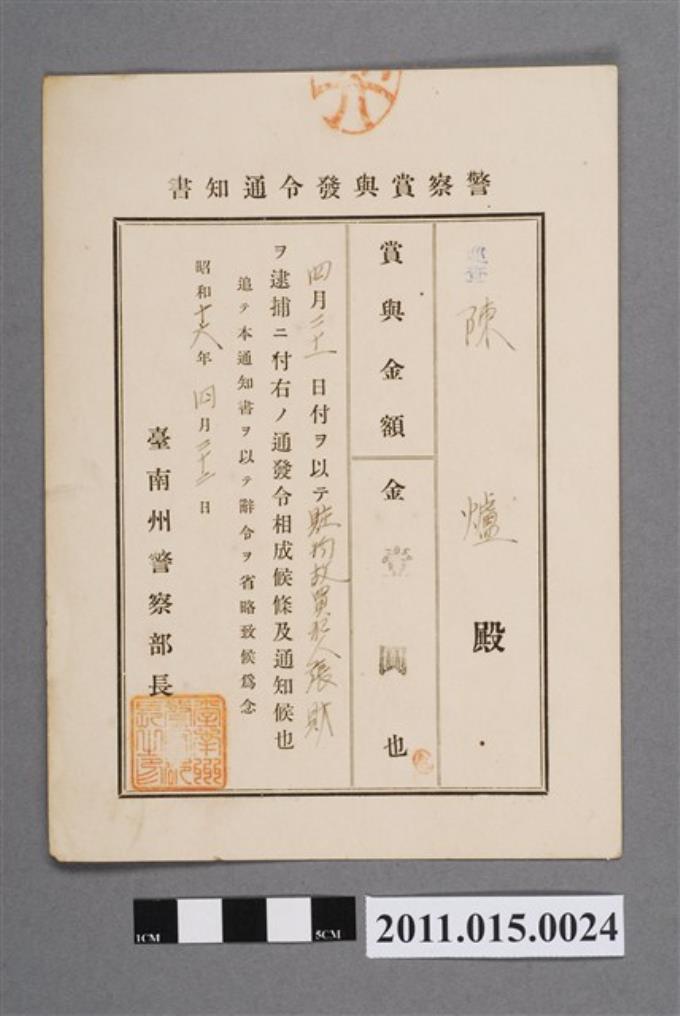 警察賞與發令通知書
巡查 陳 爐 殿
賞與金額 金 壹 圓 也
四月二十一日付ヲ以テ賍物故買犯人張財
ヲ逮捕ニ付右ノ通發令相成候條及通知候也
追テ本通知書ヲ以テ辭令ヲ省略致候爲念
昭和十六年四月二十二日
臺南州警察部長
臺南州警察部長之印
1CM
5CM
2011.015.0024